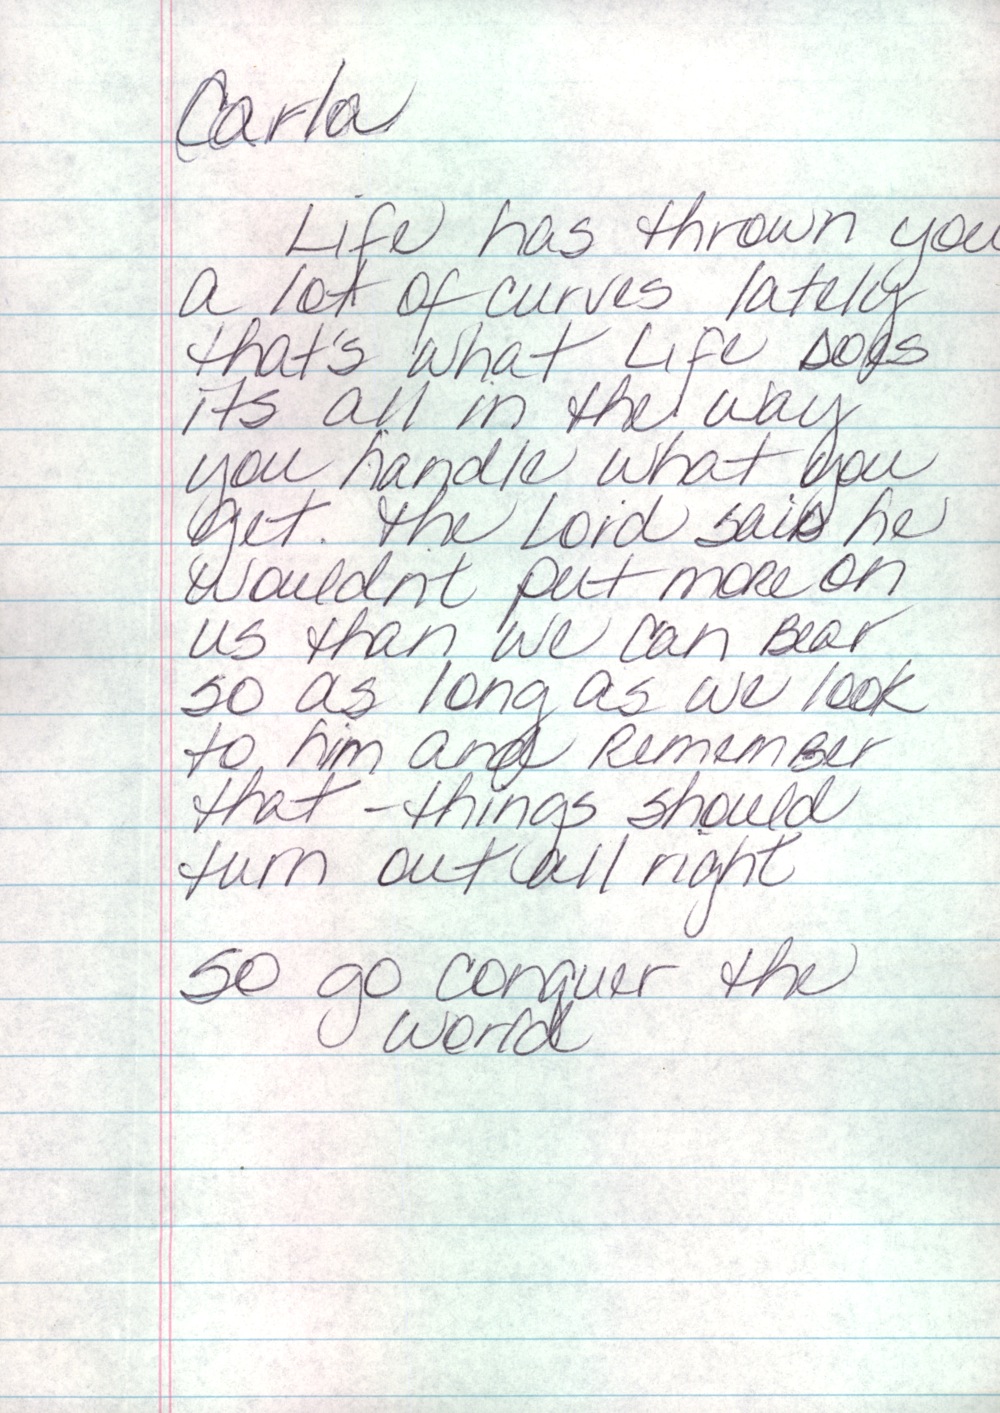 Carla
Life has thrown you
a lot of curves lately
that's what Life Does
its all in the way
you handle what you
get. the Lord said he
wouldn't put more on
us than we can Bear
so as long as we look
to him and Remember
that - things should
turn out all right
So go conquer the
world